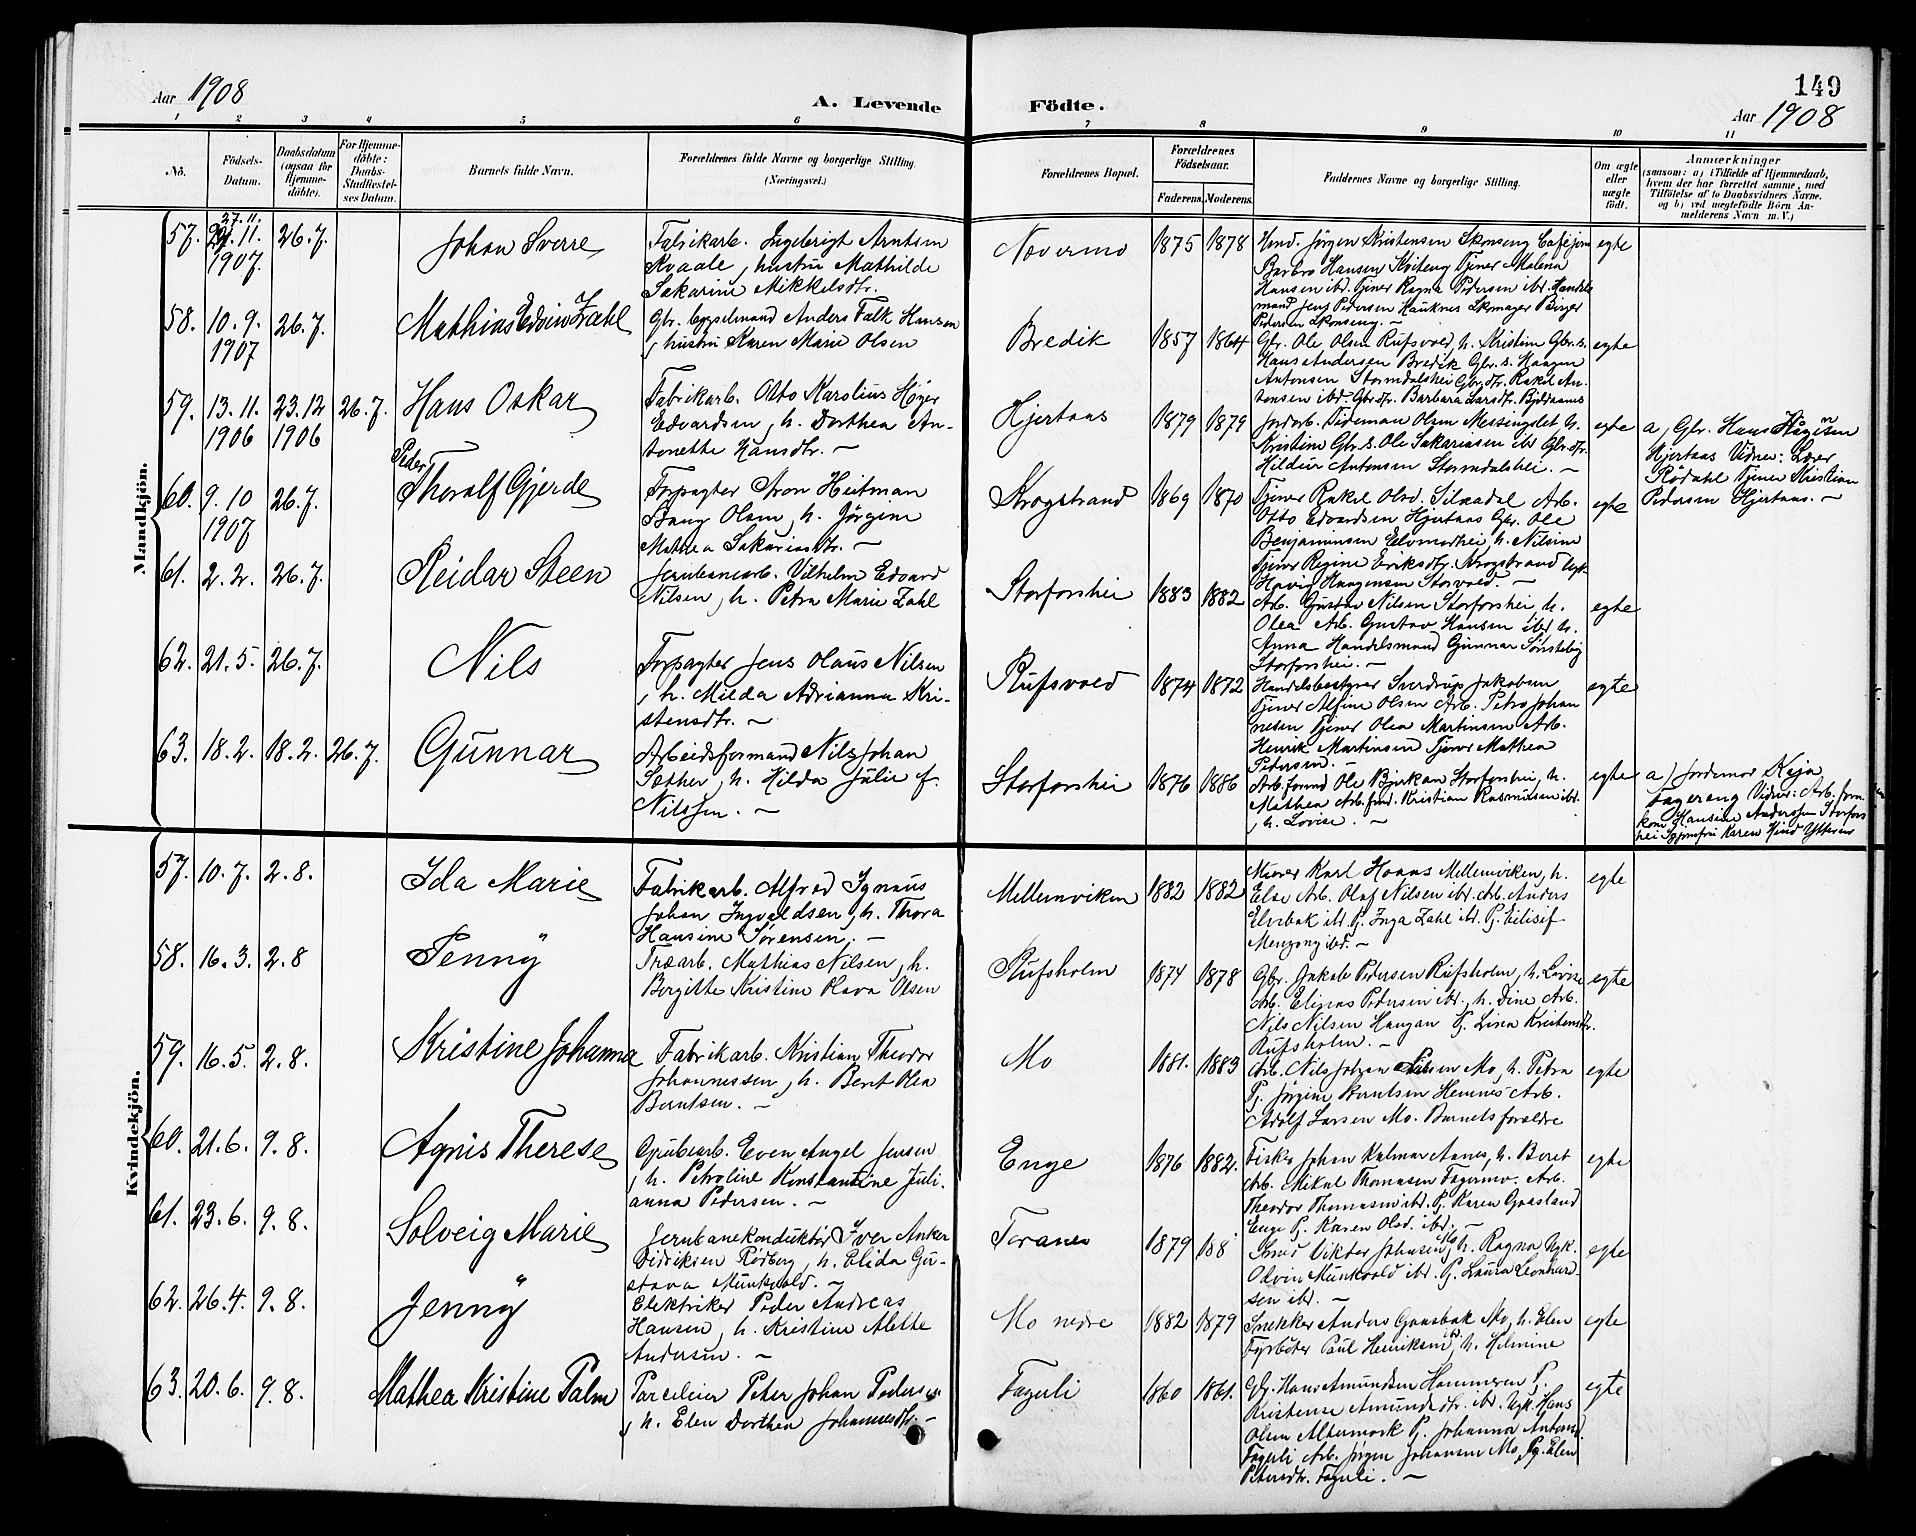 149
Aar 1908
A. Levende
Födte.
Aar 1908
1 2 3 4 5 6 7 8 9 10 11
No.
Födsels-
Datum.
Daabsdatum
(ogsaa for
Hjemme-
döbte).
For Hjemme-
döbte:
Daabs-
Stadfæstel-
ses Datum.
Barnets fulde Navn.
Forældrenes fulde Navne og borgerlige Stilling.
(Næringsvei.)
Forældrenes Bopæl.
Forældrenes
Födselsaar.
Faderens. Moderens.
Faddernes Navne og borgerlige Stilling.
Om ægte
eller
uægte
födt.
Anmærkninger
(saasom: a) i Tilfælde af Hjemmedaab,
hvem der har forrettet samme, med
Tilföielse af to Daabsvidners Navne,
og b) ved uægtefödte Börn An-
melderens Navn m. V.)
Mandkjön.
57. 27.11. 1907. 26.7.
Johan Sverre
Fabrikarb. Ingebrigt Arntsen
Kvaale, hustru Mathilde
Sakarine Mikkelsdtr.
Nævermo
1875 1878
Hand. Jörgen Kristensen Skonseng
Barbro Hansen Tjener Malena
Hansen ibd. Tjener Ragna Pedersen ibd. Handels
mand Jens Pedersen Hauknes Skomager Birger
Pedersen Skonseng. —
egte
58. 10.9. 1907 26.7.
Mathias Edvin Zahl
Gbr. Anders Falk Hansen
, hustru Karen Marie Olsen
Bredik
1857 1864
Gbr. Ole Olsen Rufsvold, h. Kristine Gbr.s.
Hans Andersen Bredik Gbr.s. Haagen
Antonsen Stormdalshei Gbrdtr. Rakel An-
tonsen ibd. Gbrdtr. Barbara Larsdtr.
egte
59. 13.11. 1906 23.12 1906 26.7.
Hans Oskar
Fabrikarb. Otto Karolius Høyer
Edvardsen, h. Dorthea An-
tonette Hansdtr. —
Hjertaas
1879 1879
Jordarb. Tideman Olsen Messingslet h.
Kristine Gbr.s. Ole Sakariasen ibd. Gbrdtr.
Hildur Antonsen Stormdalshei. —
egte
a, Gbr. Hans
Hjertaas Vidner: Lærer
Rödahl Tjener Kristian
Pedersen Hjertaas. —
60. 9.10 1907 26.7.
Peder
Thoralf Gjerde
Forpagter Aron Heitman
Bang Olsen, h. Jörgine
Mathea Sakariasdtr. —
Krogstrand
1869 1870
Tjener Rakel Olsd. Arb.
Otto Edvardsen Hjertaas Gbr. Ole
Benjaminsen h. Nilsine
Tjener Regine Eriksdtr. Krogstrand
Haagensen Storvold. —
egte
61. 2.2. 26.7.
Reidar Steen
Jernbanearb. Vilhelm Edvard
Nilsen, h. Petra Marie Zahl
Storforshei
1883 1882
Arb. Gustav Nilsen Storforshei, h.
Olea Arb. Gustav Hansen ibd. h.
Anna Handelsmand Gunnar Sönsteby
Storforshei. —
egte
62. 21.5. 26.7.
Nils
Forpagter Jens Olaus Nilsen
, h. Milda Adrianna Kri-
stensdtr. —
Rufsvold
1874 1872
Handelsbestyrer Sverdrup Jakobsen
Tjener Alfine Olsen Arb. Petro Johan
nesen Tjener Olea Martinsen Arb.
Henrik Martinsen Tjener Mathea
Pedersen. —
egte
63. 18.2. 18.2. 26.7.
Gunnar
Arbeidsformand Nils Johan
Sæther, h. Hilda Julie f.
Nilssen. —
Storforshei
1876 1886
Arb.formd Ole Bjerkan Storforshei, h.
Mathea Arb.fmd. Kristian Rasmussen ibd.
, h. Lovise. —
egte
a) Jordemor Keja
Fagereng Vidner: Arb. fm.
kone Hansine Anderssen Storfors
hei Karen Hind Ytteren
Kvindekjön.
57. 10.7. 2.8.
Ida Marie
Fabrikarb. Alfred Ignæus
Johan Ingvaldsen, h. Thora
Hansine Sørensen. —
Mellemviken
1882 1882
Murer Karl Haans Mellemviken, h.
Else Arb. Olaf Nilsen ibd. Arb. Anders
Elvebak ibd. Pg. Inga Zahl ibd. Pg. Eilisif
Menzony ibd. —
egte
58. 16.3. 2.8
Penny
Træarb. Mathias Nilsen, h.
Bergitte Kristine Olava Olsen
Rufsholm
1874 1878
Gbr. Jakob Pedersen Rufsholm, h. Lovise
Arb. Elizeas Pedersen ibd., h. Dine Arb.
Nils Nilsen Haugan Pg. Lina Kristensdtr.
Rufsholm. —
egte
59. 16.5. 2.8.
Kristine Johanna
Fabrikarb. Kristian Theodor
Johannessen, h. Beret Olea
Berntsen. —
Mo
1881. 1883
Arb. Nils Johan Nilsen Mo, h. Petra
Pg. Jörgine Berntsen Hemnes Arb.
Adolf Larsen Mo. Barnets forældre
egte
60. 21.6. 9.8.
Agnis Therese
Grubearb. Even Angel Jensen
, h. Petroline Konstantine Juli-
anna Pedersen. —
Enge
1876 1882.
Fisker Johan Kalmar Aanes, h. Beret
Arb. Mikal Thomasen Fagermo. Arb.
Theodor Thomasen ibd. Pg. Karen Graesland
Enge Pg. Karen Olsd. ibd. —
egte
61. 23.6. 9.8.
Solveig Marie
Jernbanekonduktør Iver Anker
Didriksen Rödberg, h. Elida Gu-
stava Munkvold. —
Toranes
1879 188
Smed Viktor Johnsen Mo, h. Ragna Ugk.
Odvin Munkvold ibd. Pg. Laura Leonhard-
sen ibd. —
egte
62. 26.4. 9.8.
Jenny
Elektriker Peder Andreas
Hansen, h. Kristine Alette
Andersen. —
Mo nedre
1882 1879
Snekker Anders Graesbak Mo, h. Elen
Fyrböter Paul Henriksen ibd, h. Helmine
egte
63. 20.6. 9.8.
Mathea Kristine Palm
Parceleier Peter Johan Pedersen
, h. Elen Dorthea Johannesdtr. —
Faguli
1860 1861.
Gbr. Hans Amundsen Hammeren P.
Kristense Amundsdtr. ibd. Ugk. Hans
Olsen Altermark Pg. Johanna Antonsd.
Faguli Arb. Jørgen Johansen Mo, Pg. Elen
Petersdtr. Faguli. —
egte